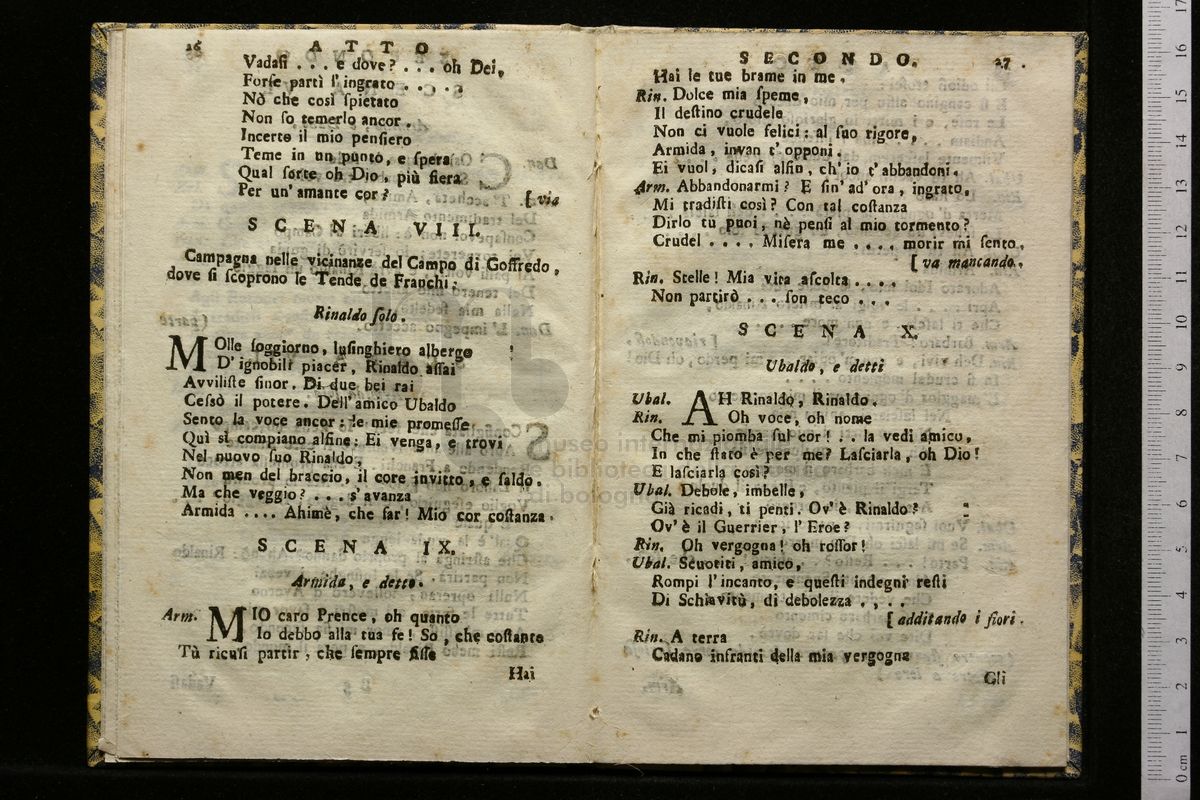 26 ATTO
Vadaſi . . . e dove? . . . oh Dei,
Forſe partì l'ingrato . . . . .
Nò che così ſpietato
Non ſo temerlo ancor.
Incerto il mio penſiero
Teme in un punto, e ſpera
Qual ſorte oh Dio, più fiera
Per un' amante cor? [via
SCENA VIII.
Campagna nelle vicinanze del Campo di Goffredo,
dove ſi ſcoprono le Tende de Franchi.
Rinaldo ſolo.
MOlle ſoggiorno, luſinghiero albergo
D'ignobili piacer, Rinaldo aſſai
Avviliſte ſinor. Di due bei rai
Ceſsò il potere. Dell'amico Ubaldo
Sento la voce ancor: le mie promeſſe
Quì ſi compiano alfine: Ei venga, e trovi
Nel nuovo ſuo Rinaldo,
Non men del braccio, il core invitto, e ſaldo.
Ma che veggio? . . . s'avanza
Armida .... Ahimè, che far! Mio cor coſtanza.
SCENA IX.
Armida, e detto.
Arm. MIO caro Prence, oh quanto
Io debbo alla tua fe! So, che coſtante
Tù ricuſi partir, che ſempre fiſſe
Hai
SECONDO. 27
Hai le tue brame in me.
Rin. Dolce mia ſpeme,
Il deſtino crudele
Non ci vuole felici: al ſuo rigore,
Armida, invan t'opponi.
Ei vuol, dicaſi alfin, ch'io t'abbandoni.
Arm. Abbandonarmi? E ſin'ad'ora, ingrato,
Mi tradiſti così? Con tal coſtanza
Dirlo tu puoi, nè penſi al mio tormento?
Crudel .... Miſera me .... morir mi ſento.
[va mancando.
Rin. Stelle! Mia vita aſcolta ....
Non partirò . . . ſon teco . . .
SCENA X.
Ubaldo, e detti
Ubal. AH Rinaldo, Rinaldo.
Rin. Oh voce, oh nome
Che mi piomba ſul cor! . . la vedi amico,
In che ſtato è per me? Laſciarla, oh Dio!
E laſciarla così?
Ubal. Debole, imbelle,
Già ricadi, ti penti. Ov'è Rinaldo?
Ov'è il Guerrier, l'Eroe?
Rin. Oh vergogna! oh roſſor!
Ubal. Scuotiti, amico,
Rompi l'incanto, e queſti indegni reſti
Di Schiavitù, di debolezza ....
[additando i fiori.
Rin. A terra
Cadano infranti della mia vergogna
Gli